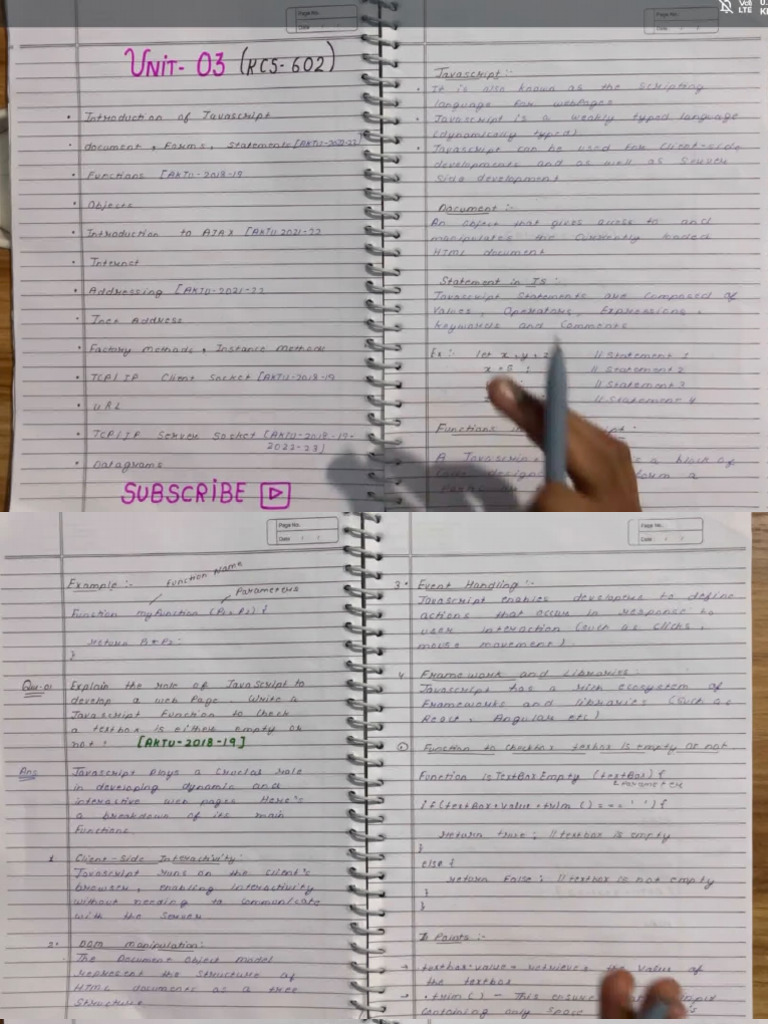 Page No.
Date
UNIT- 03 (KCS-602)
• Introduction of Javascript
• document, Forms, Statements [AKTU-2022-23]
• Functions [AKTU-2018-19
• Objects
• Introduction to AJAX [AKTU 2021-22
• Internet
• Addressing [AKTU-2021-22
• Inet Address
• Factory methods, Instance Methods
• TCP/IP Client Socket [AKTU-2018-19
• URL
• TCP/IP Server Socket [AKTU-2018-19-
2022-23)
• Datagrams
SUBSCRIBE
Page No.
Date
VoI
LTE
Javascript :-
• It is also known as the scripting
language for webpages
• Javascript is a weakly typed language
(dynamically typed)
• Javascript can be used for Client-side
developments and as well as Server
side development
Document :-
An object that gives access to and
manipulates the currently loaded
HTML document
Statement in JS :
Javascript Statements are composed of
Values, Operators, Expressions,
keywords and Comments
Ex :- let x, y, z // Statement 1
x = 5 ; // Statement 2
// Statement 3
// Statement 4
Functions in
A Javascrip a block of
form a
Page No.
Date / /
Example :- Function Name
Parameters
Function myFunction (P1, P2) {
return P1 * P2
}
Que-01 Explain the role of JavaScript to
develop a web Page. Write a
Javascript Function to check
a textbox is either empty or
not? [AKTU-2018-19]
Ans Javascript plays a Crucial role
in developing dynamic and
interactive web pages Here's
a breakdown of its main
Functions
1. Client-Side Interactivity:
Javascript runs on the Client's
browser, enabling interactivity
without needing to communicate
with the Server
2. DOM manipulation:
The Document Object model
represent the structure of
HTML documents as a tree
Structure
Page No.
Date / /
3. Event Handling :-
Javascript enables developers to define
actions that occur in response to
user interaction (such as clicks,
mouse movement).
4. Framework and Libraries:
Javascript has a rich ecosystem of
Frameworks and libraries (such as
React, Angular etc)
Function to checkbox texbox is empty or not.
Function isTextBoxEmpty (textBox) {
if (textBox.value.trim () === ' ') {
return true ; // textbox is empty
}
else {
return False ; // textbox is not empty
}
}
In Points :-
→ textbox.value → retrieves the value of
the textbox
→ .trim () - This ensure input
containing only space